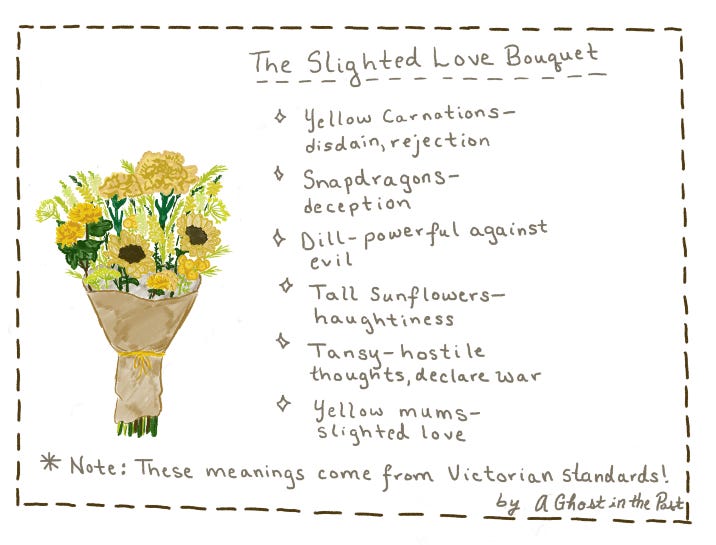 The Slighted Love Bouquet
✧ Yellow Carnations—
disdain, rejection
✧ Snapdragons—
deception
✧ Dill- powerful against
evil
✧ Tall Sunflowers—
haughtiness
✧ Tansy-hostile
thoughts, declare war
✧ Yellow mums-
slighted love
* Note: These meanings come from Victorian standards!
by A Ghost in the Past